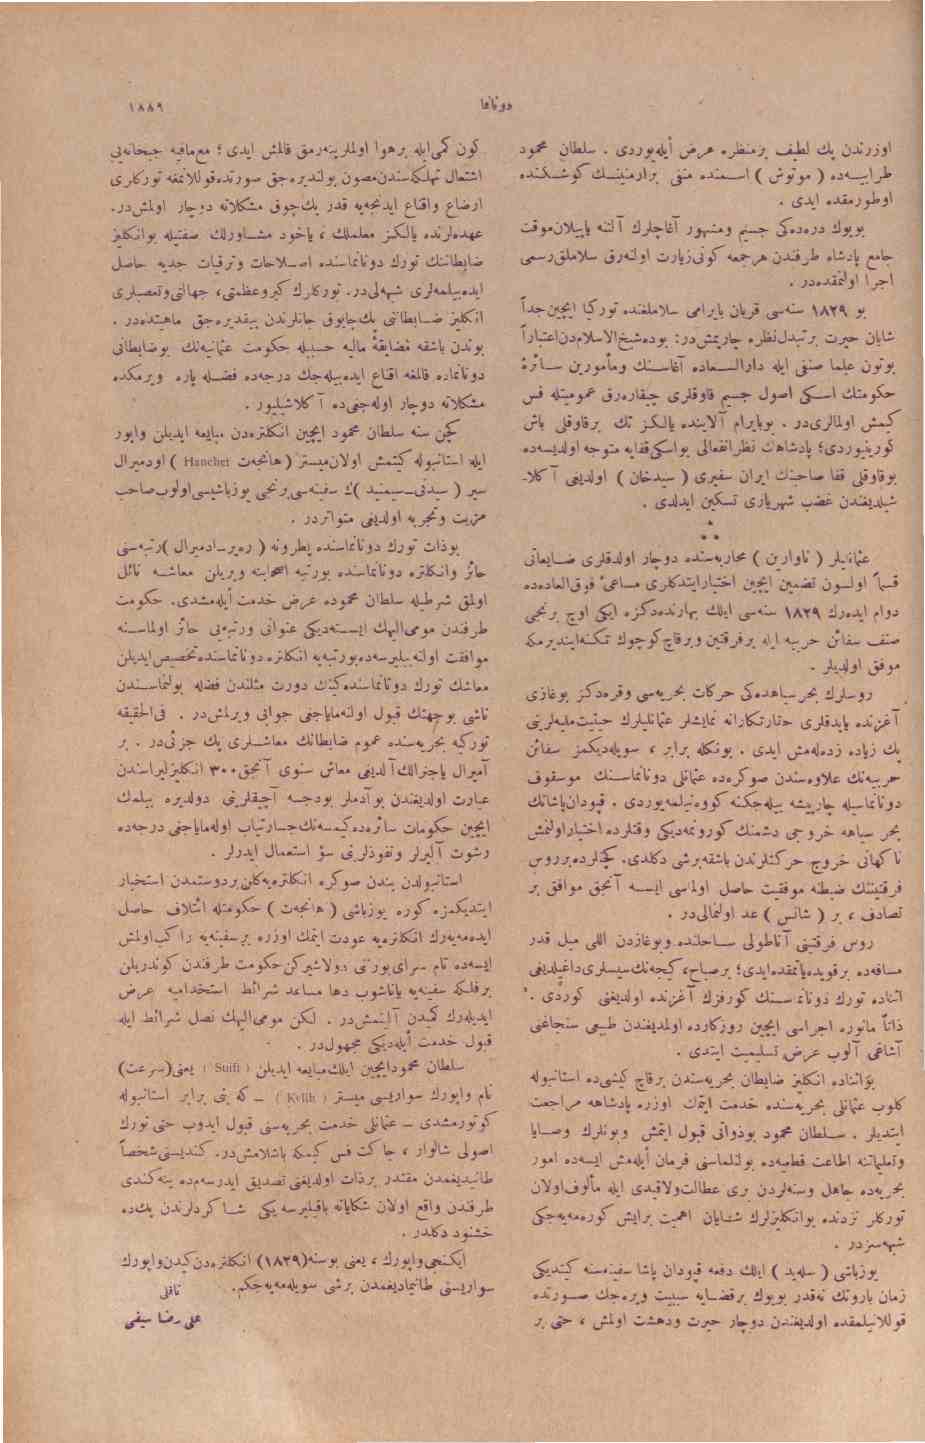 دوناﻧﻤﺎ
١٨٨٩
اوزرندن پك لطيف برمنظره عرض ايله‌يوردى . سلطان محمود
طرابيه‌ده ( موتوش ) اسمنده منفى برارمنينك كوشكنده
اوطورمقده ايدى .
بويوك دره‌ده‌كى جسيم ومشهور آغاچلرك آلتنه ياپيلان موقت
جامع پادشاه طرفندن هرجمعه كونى زيارت اولنه‌رق سلاملق رسمى
اجرا اولنمقده‌در .
بو ١٨٢٩ سنه‌سى قربان بايرامى سلاملغنده توركيا ايچين جداً
شايان حيرت برتبدل نظره چارپمش‌در : بوده شيخ الاسلام‌دن اعتباراً
بوتون علما صنفى ايله دارالسعاده آغاسنك ومأمورين سائرۀ
حكومتك اسكى اصول جسيم قاوقلرى چيقاره‌رق عموميتله فس
كيمش اولمالرى‌در . بوبايرام آلاينده يالكز تك برقاوقلى باش
كورينيوردى؛ پادشاهك نظر انفعالى بواسكى قفايه متوجه اولديسه‌ده
بوقاوقلى قفا صاحبنك ايران سفيرى ( سيدخان ) اولديغى آكلا-
شيلديغندن غضب شهريارى تسكين ايدلدى .
* * *
عثمانليلر ( ناوارين ) محاربه‌سنده دوچار اولدقلرى ضايعاتى
قسماً اولسون تضمين ايچين اختيار ايتدكلرى مساعئ فوق العاده‌ده
دوام ايده‌رك ١٨٢٩ سنه‌سى ايلك بهارنده دكزه ايكى اوچ برنجى
صنف سفائن حربيه ايله برفرقتين وبرقاچ كوچوك تكنه ايندیرمكه
موفق اولديلر .
روسلرك بحر سياهده‌كى حركات بحريه‌سى وقره‌دكز بوغازى
آغزنده ياپدقلرى حقارتكارانه نمايشلر عثمانليلرك حيثيت مليه‌لرينى
پك زياده زده‌له‌مش ايدى . بونكله برابر ، سويله‌ديكمز سفائن
حربيه‌نك علاوه‌سندن صوكره‌ده عثمانلى دونانماسنك موسقوف
دونانماسيله چارپيشه بيله‌جكنه كووه‌نيلمه‌يوردى . قپودان پاشانك
بحر سياهه خروجى دشمنك كورونمه‌ديكى وقتلرده اختيار اولنمش
ناكهانى خروج حركتلرندن باشقه برشى دكلدى. كچنلرده برروس
فرقتيننك ضبطنه موفقيت حاصل اولماسى ايسه آنجق موافق بر
تصادف ، بر ( شانس ) عد اولنمالى‌در .
روس فرقتينى آناطولى ساحلنده وبوغازدن اللى ميل قدر
مسافه‌ده برقويده ياتمقده‌ايدى؛ برصباح، كيجه‌نك سيسلرى داغيلديغى
اثناده تورك دونانماسنك كورفزك آغزنده اولديغنى كوردى .
ذاتاً مانوره اجراسى ايچين روزكارده اولمديغندن طبيعى سنجاغنى
آشاغى آلوب عرض تسليميت ايتدى .
بو اثناده انكليز ضابطان بحريه‌سندن برقاچ كيشى‌ده استانبوله
كلوب عثمانلى بحريه‌سنده خدمت ايتمك اوزره پادشاهه مراجعت
ايتديلر . سلطان محمود بوذواتى قبول ايتمش وبونلرك وصايا
وتعليماتنه اطاعت قطعيه‌ده بولنلماسنى فرمان ايله‌مش ايسه‌ده امور
بحريه‌ده جاهل وسنه‌لردن برى عطالت ولاقيدى ايله مألوف اولان
توركلر نزدنده بوانكليزلرك شايان اهميت برايش كوره‌مه‌يه‌جكى
شبهه‌سزدر .
يوزباشى ( سله‌يد ) ايلك دفعه قپودان پاشا سفينه‌سنه كيتديكى
زمان باروتك نه‌قدر بويوك برقضايه سببيت ويره‌جك صورتده
قوللانيلمقده اولديغندن دوچار حيرت ودهشت اولمش ، حتى بر
كون كمى ايله برهوا اولملرينه رمق قالمش ايدى ؛ مع‌مافيه جبخانه‌يى
اشتعال تهلكه‌سندن مصون بولنديره‌جق صورتده قوللانمغه توركلرى
ارضاع واقناع ايدنجه‌يه قدر پك چوق مشكلاته دوچار اولمش‌در.
عهده‌لرنده يالكز معلملك ، ياخود مشاورلك صفتيله بو انكليز
ضابطاننك تورك دونانماسنده اصلاحات وترقيات جديه حاصل
ايده‌بيلمه‌لرى شبهه‌لى‌در. توركلرك كبروعظمتى، جهالتى وتعصبلرى
انكليز ضابطاننى پك چابوق جانلرندن بيقديره‌جق ماهيتده‌در .
بوندن باشقه مضايقۀ ماليه حسبيله حكومت عثمانيه‌نك بوضابطانى
دونانماده قالمغه اقناع ايده‌بيله‌جك درجه‌ده فضله پاره ويرمكده
مشكلاته دوچار اوله‌جغى‌ده آكلاشيليور .
كچن سنه سلطان محمود ايچين انكلتره‌دن مبايعه ايديلن واپور
ايله استانبوله كيتمش اولان ميستر ( هانجه‌ت Hanchet ) اودميرال
سير ( سيدنى-سيميد )ك سفينه‌سى برنجى يوزباشيسى اولوب صاحب
مزيت وتجربه اولديغى متواتردر .
بوذات تورك دونانماسنده پطرونه ( ره‌ير-ادميرال )رتبه‌سنى
حائز وانكلتره دونانماسنده بورتبه اصحابنه ويريلن معاشه نائل
اولمق شرطيله سلطان محموده عرض خدمت ايله‌مشدى. حكومت
طرفندن مومى‌اليهك ايسته‌ديكى عنوانى ورتبه‌يى حائز اولماسنه
موافقت اولنه‌بيليرسه‌ده بورتبه‌يه انكلتره دونانماسنده تخصيص ايديلن
معاشك تورك دونانماسنده‌كينك دورت مثلندن فضله بولنماسندن
ناشى بوجهتك قبول اولنه‌ماياجغى جوابى ويرلمش‌در . فى‌الحقيقه
توركيه بحريه‌سنده عموم ضابطانك معاشلرى پك جزئى‌در . بر
آميرال ياجنرالك آلديغى معاش سنوى آنجق ٣٠٠ انكليز ليراسندن
عبارت اولديغندن بوآدملر بودجه آچيقلرينى دولديره بيلمك
ايچين حكومات سائره‌ده كيمسه‌نك جسارتياب اوله‌ماياجغى درجه‌ده
رشوت آليرلر ونفوذلرينى سؤ استعمال ايدرلر .
استانبولدن بندن صوكره انكلتره‌يه كلن بردوستمدن استخبار
ايتديكمزه كوره يوزباشى ( هانجه‌ت ) حكومتله ائتلاف حاصل
ايده‌مه‌يه‌رك انكلتره‌يه عودت ايتمك اوزره برسفينه‌يه راكب اولمش
ايسه‌ده تام سراى بورننى دولاشيركن حكومت طرفندن كوندريلن
برفلكه سفينه‌يه ياناشوب دها مساعد شرائط استخداميه عرض
ايديله‌رك كميدن آلينمش‌در . لكن مومى‌اليهك نصل شرائط ايله
قبول خدمت ايله‌ديكى مجهول‌در .
سلطان محمود ايچين ايلك مبايعه ايديلن ( Suifi ) يعنى (سرعت)
نام واپورك سواريسى ميستر ( Kvllh ) - كه بنى برابر استانبوله
كوتورمشدى - عثمانلى خدمت بحريه‌سنى قبول ايدوب حتى تورك
اصولى شالوار ، جاكت فس كيمكه باشلامش‌در. كنديسنى شخصاً
طانيديغمدن مقتدر برذات اولديغنى تصديق ايدرسه‌م‌ده ينه كندى
طرفندن واقع اولان شكاياته باقيليرسه يكى شاكردلرندن پك‌ده
خشنود دكلدر .
ايكنجى واپورك ، يعنى بوسنه (١٨٢٩) انكلتره‌دن كيدن واپورك
سواريسنى طانيماديغمدن برشى سويله‌مه‌يه‌جكم.
ناقلى
على رضا سيفى